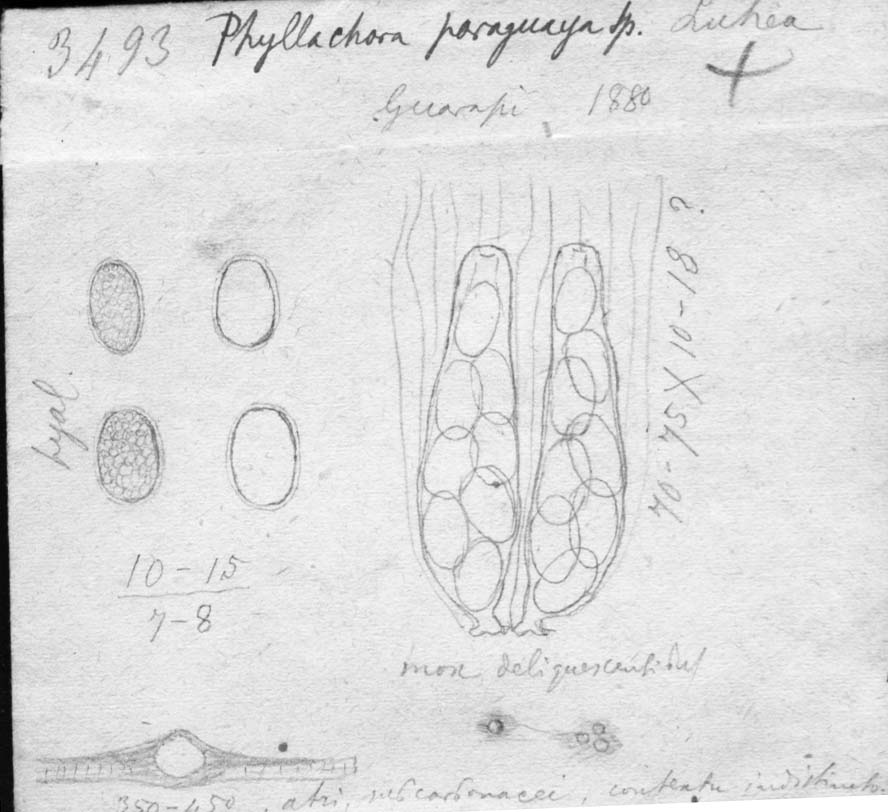 3493 Phyllachora paraguaya sp. Luhea
Guarapi 1880
hyal.
10-15
7-8
70-75 X 10-18 ?
mox deliquescentibus
350-450, atri, subcarbonacei, contextu indistincto